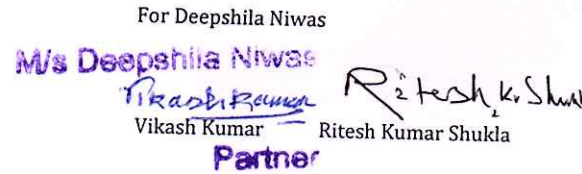 For Deepshila Niwas
M/s Deepshila Niwas
Vikash Kumar Ritesh K. Shukl
Vikash Kumar Ritesh Kumar Shukla
Partner